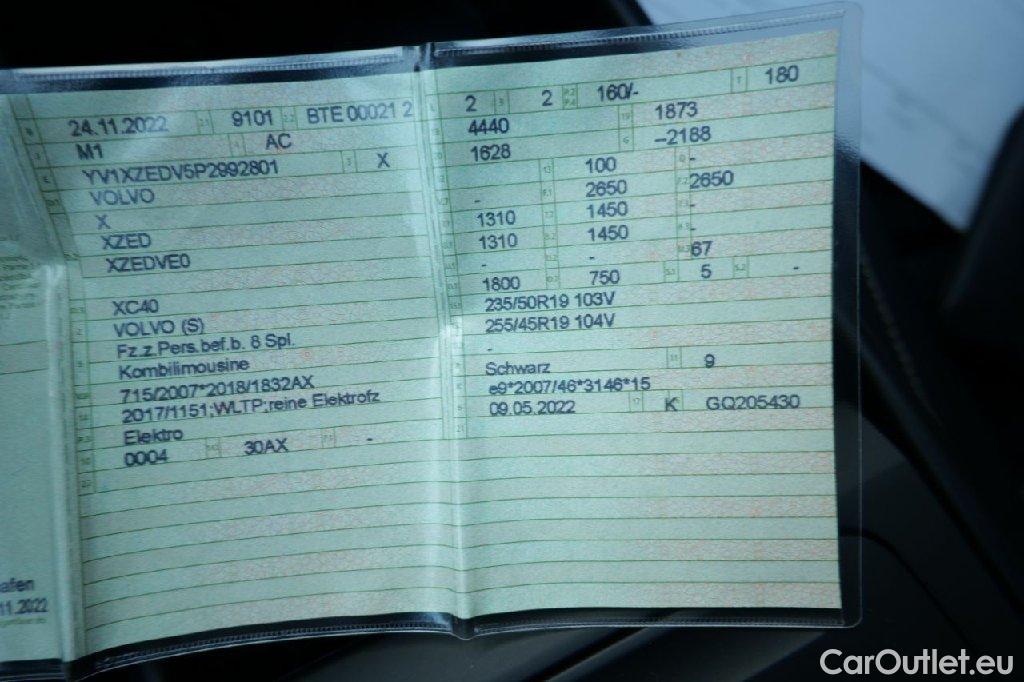 24.11.2022 9101 BTE 00021 2
M1 AC
YV1XZEDV5P2992801 X
VOLVO
X
XZED
XZEDVE0
XC40
VOLVO (S)
Fz.z.Pers.bef.b. 8 Spl.
Kombilimousine
715/2007*2018/1832AX
2017/1151;WLTP;reine Elektrofz
Elektro
0004 30AX -
2 2 160/- 180
4440 1873
1628 –2188
- 100 -
2650 2650
1310 1450 -
1310 1450 -
- - 67
1800 750 5 -
235/50R19 103V
255/45R19 104V
-
Schwarz 9
e9*2007/46*3146*15
09.05.2022 K GQ205430
afen
11.2022
CarOutlet.eu